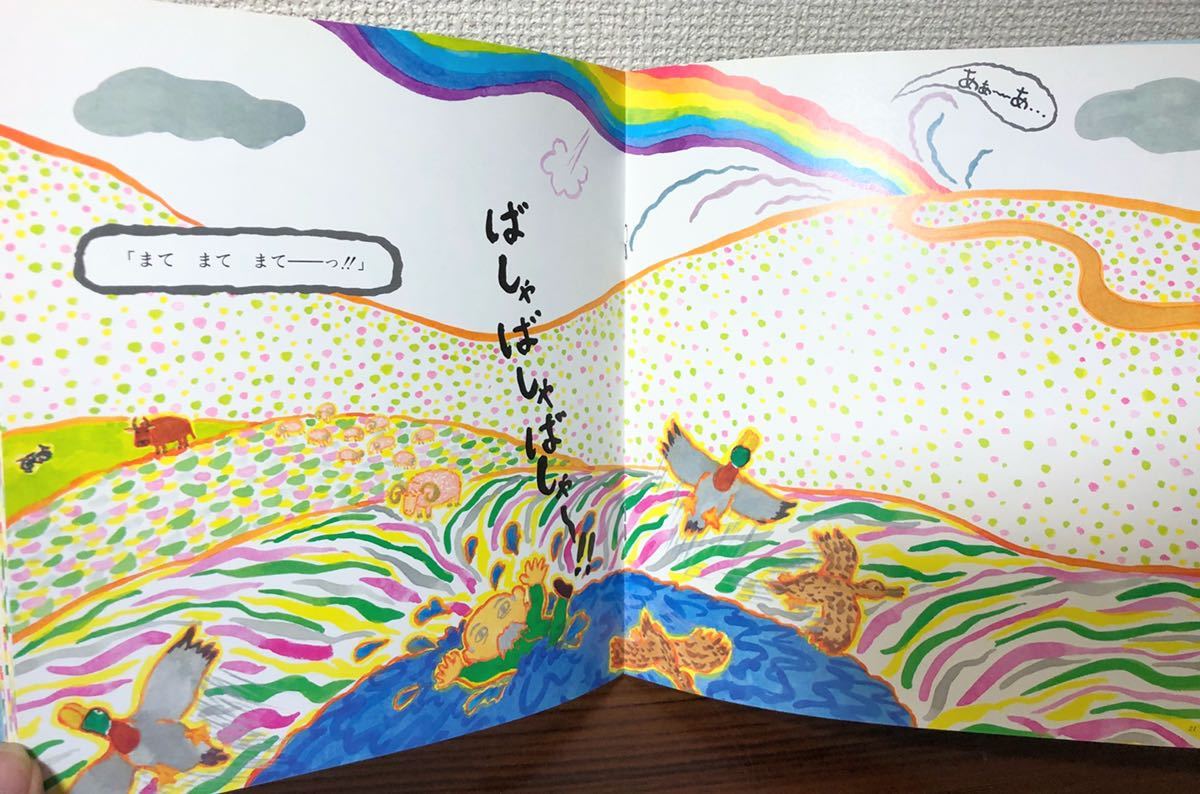 「まて まて まて――っ!!」
ばしゃばしゃばしゃ〜!!
あぁ〜あ…
21